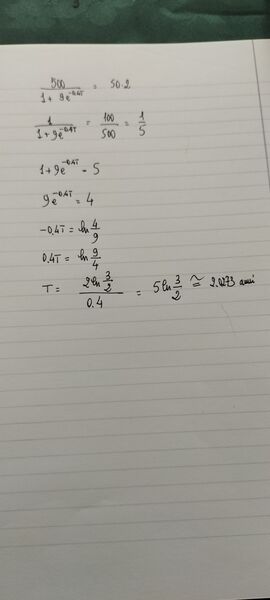 500 / (1 + 9e^-0.4T) = 50·2
1 / (1+9e^-0.4T) = 100/500 = 1/5
1+9e^-0.4T = 5
9e^-0.4T = 4
-0.4T = ln 4/9
0.4T = ln 9/4
T = (2 ln 3/2) / 0.4 = 5 ln 3/2 ≅ 2.0273 anni